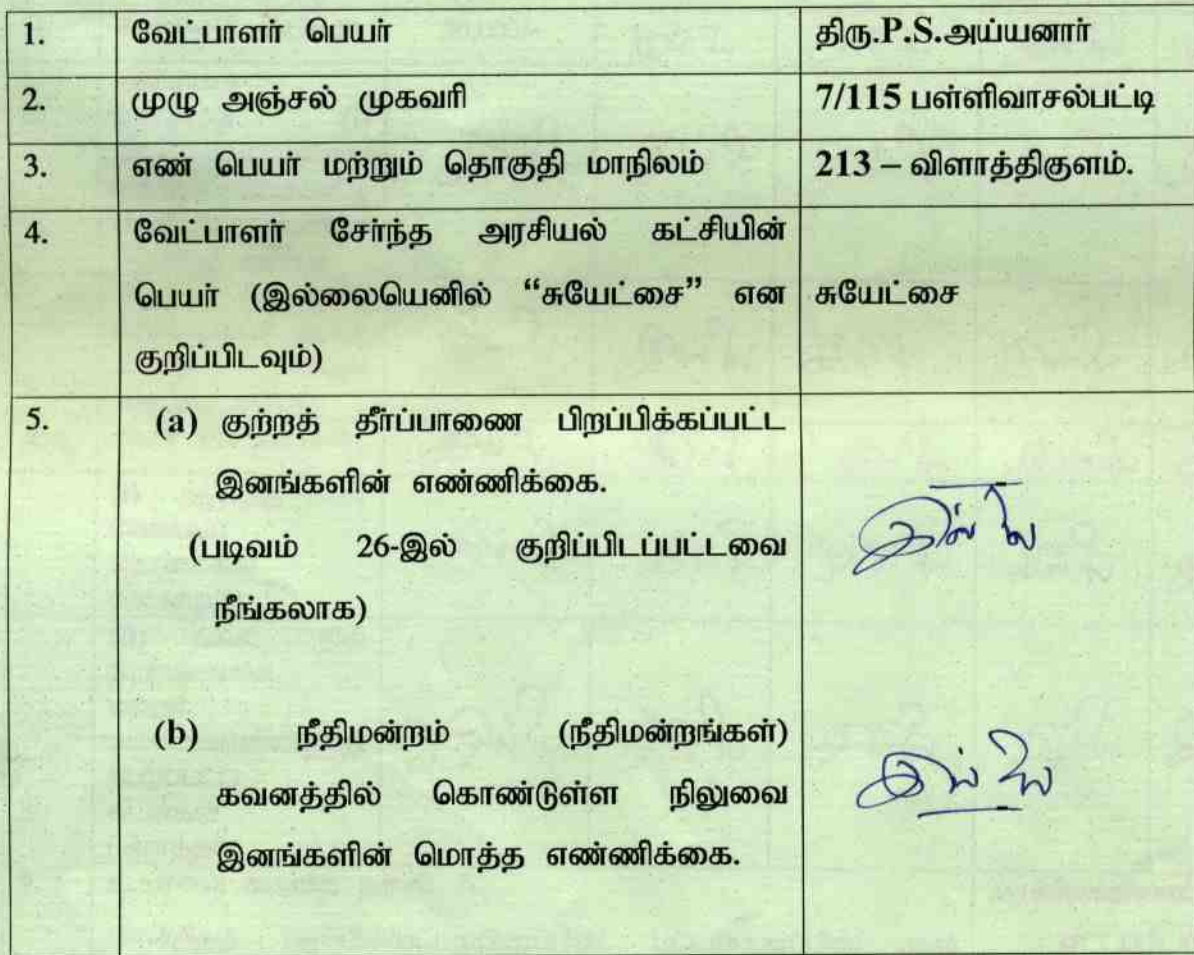 1. வேட்பாளர் பெயர் திரு.P.S.அய்யனார்
2. முழு அஞ்சல் முகவரி 7/115 பள்ளிவாசல்பட்டி
3. எண் பெயர் மற்றும் தொகுதி மாநிலம் 213 – விளாத்திகுளம்.
4. வேட்பாளர் சேர்ந்த அரசியல் கட்சியின்
பெயர் (இல்லையெனில் “சுயேட்சை” என சுயேட்சை
குறிப்பிடவும்)
5. (a) குற்றத் தீர்ப்பாணை பிறப்பிக்கப்பட்ட
இனங்களின் எண்ணிக்கை.
(படிவம் 26-இல் குறிப்பிடப்பட்டவை இல்லை
நீங்கலாக)
(b) நீதிமன்றம் (நீதிமன்றங்கள்)
கவனத்தில் கொண்டுள்ள நிலுவை இல்லை
இனங்களின் மொத்த எண்ணிக்கை.